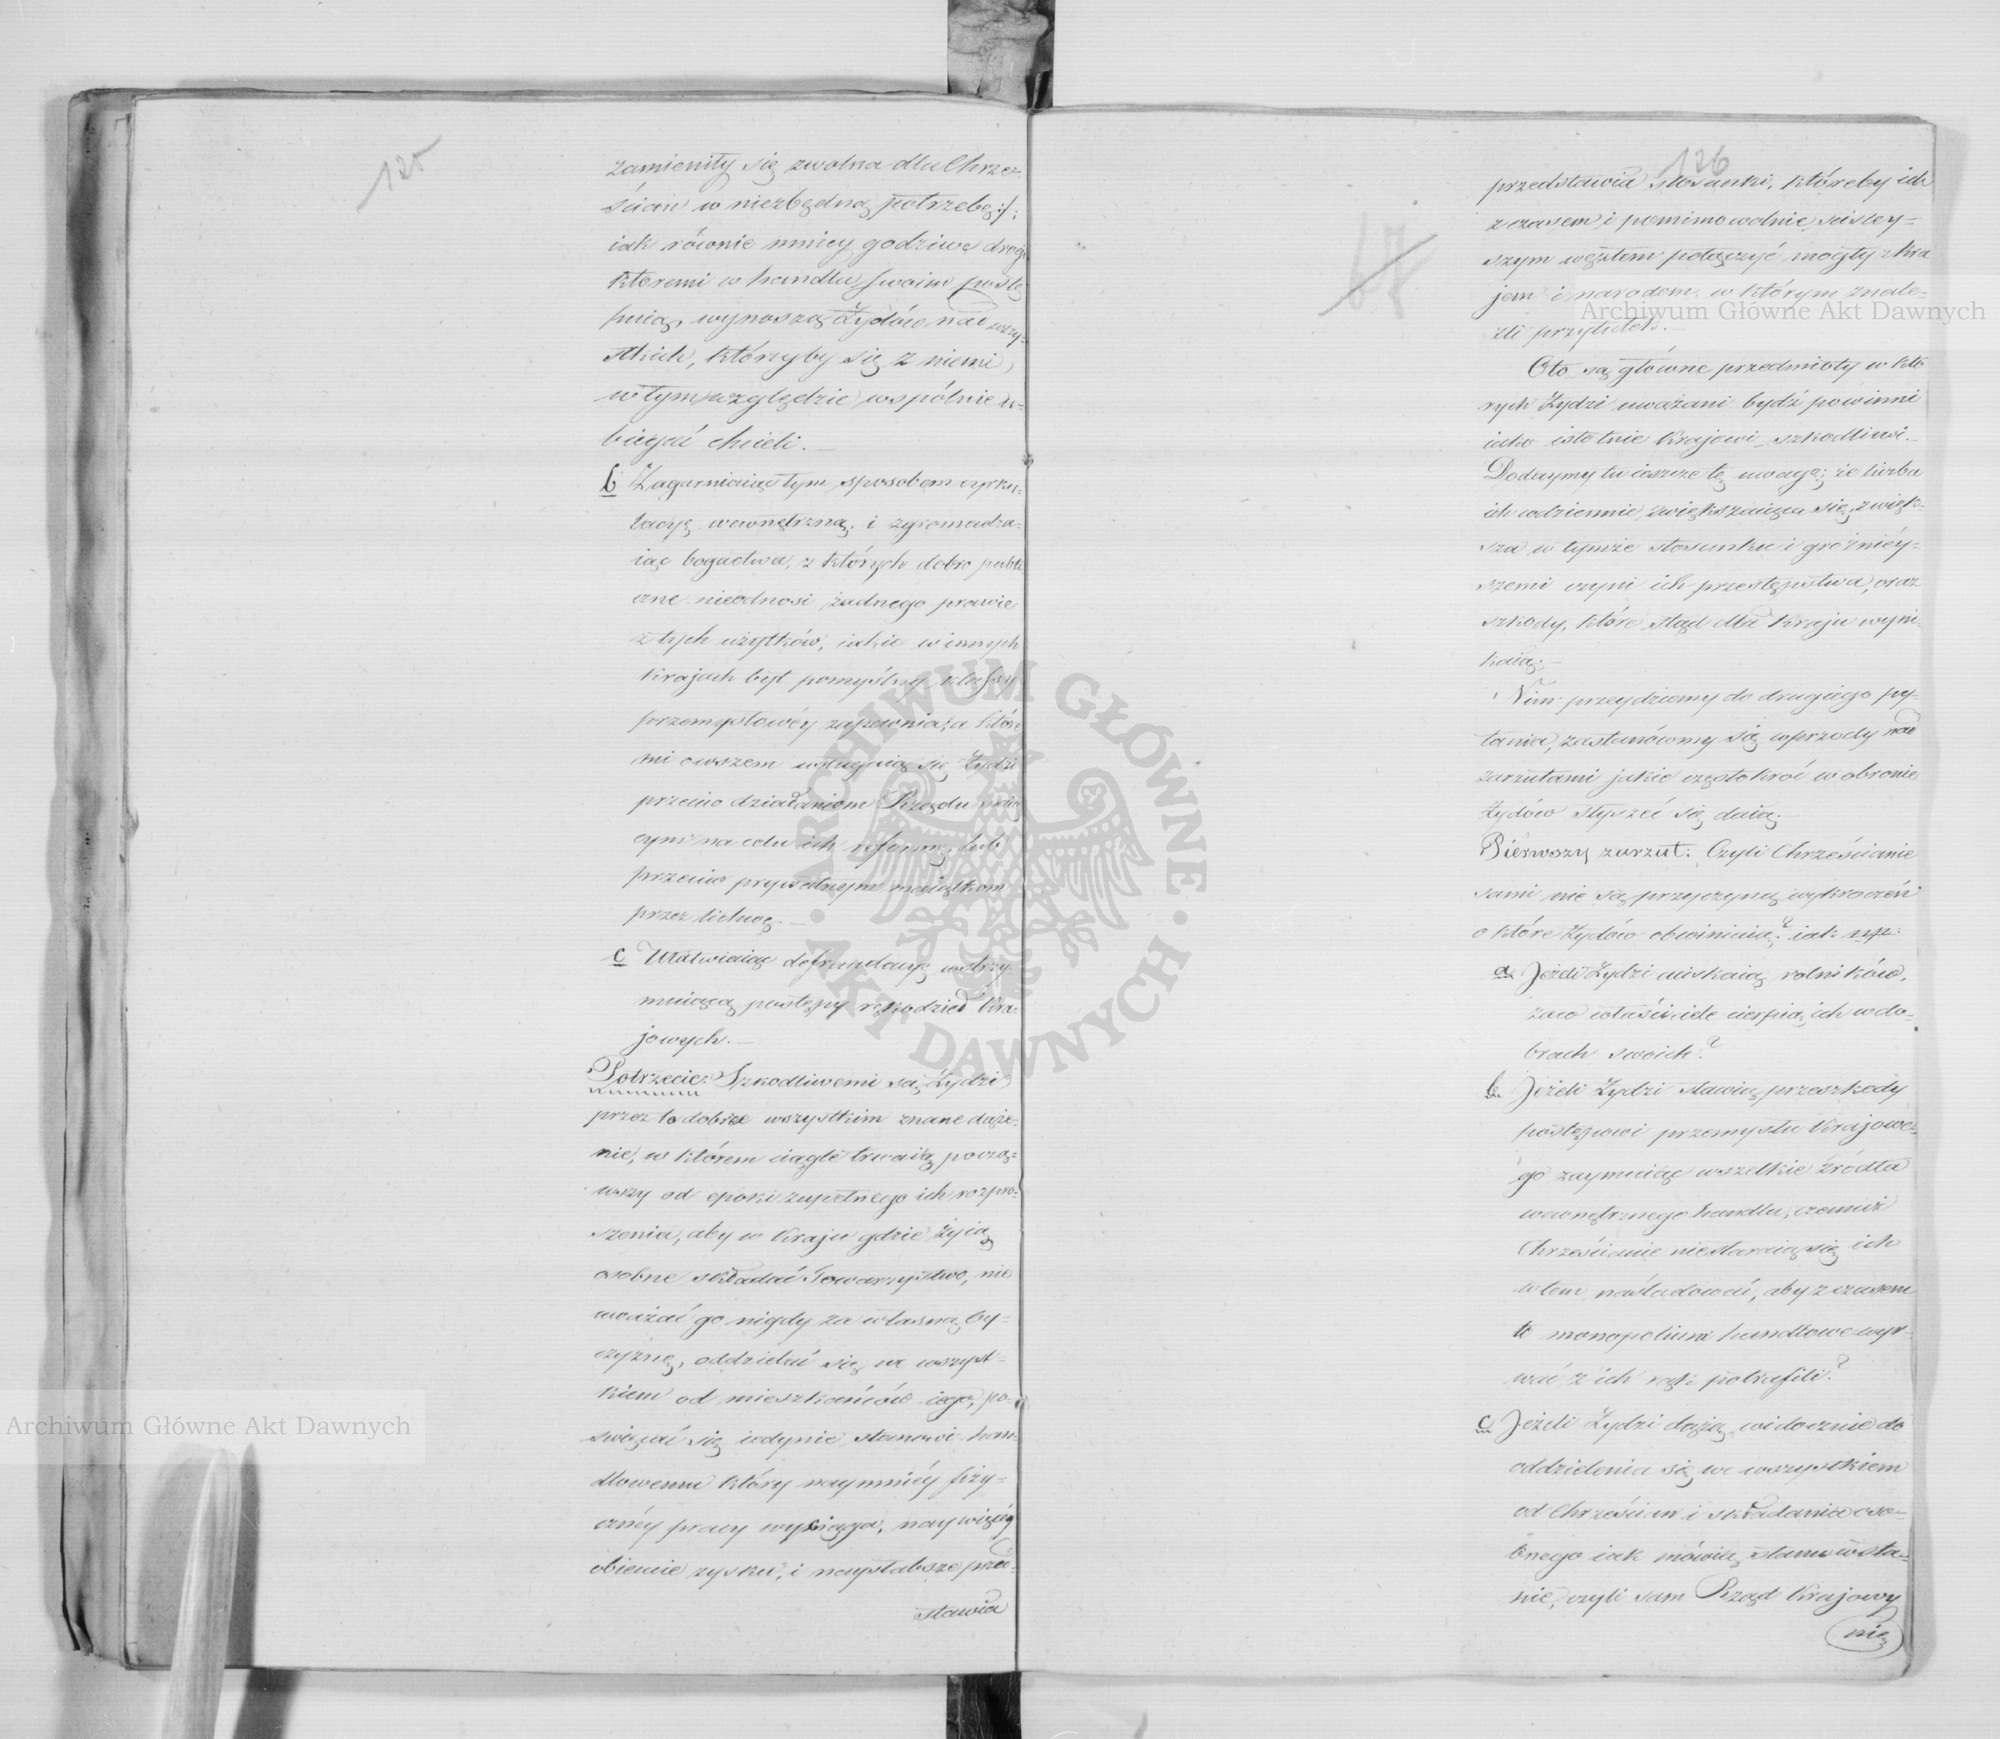 125
zamieniły się zwolna dla Chrze-
ścian w niezbędną potrzebę:/;
iak równie mniey godziwe drogi
któremi w handlu swoim postę
puią, wynoszą Żydów nad wszy-
stkich, którzyby się z niemi
w tym względzie wspólnie u-
biegać chcieli. —
b Zagarniaiąc tym sposobem cyrku-
lacyę wewnętrzną, i zgromadza-
iąc bogactwa, z których dobro publi
czne nieodnosi żadnego prawie
z tych użytków, iakie w innych
Krajach byt pomyślny klassy
przemysłowéy zapewnia, a któré
mi owszem usługuią się Żydzi
przeciw działaniom Rządu maią
cym na celu ich reformę, lub
przeciw prywatnym maiątkom
przez lichwę. —
c Ułatwiaiąc defraudacyę wstrzy-
muiącą postępy rękodzieł Kra-
jowych. —
Potrzecie: Szkodliwemi są Żydzi
przez to dobrze wszystkim znane dąże-
nie, w którem ciągle trwaią, począ-
wszy od epoki zupełnego ich rozpro-
szenia, aby w Kraju gdzie żyią
osobne składać Towarzystwo, nie
uważać go nigdy za własną oy-
czyznę, oddzielać się we wszyst-
kiem od mieszkańców iego, po-
święcać się iedynie stanowi han-
dlowemu który naymniéy fizy-
cznéy pracy wyciąga, naywięcéy
obiecuie zysku, i naysłabsze przed-
stawia
126
67
przedstawia stosunki, któreby ich
z czasem i pomimowolnie ściśley-
szym węzłem połączyć mogły z Kra
jem i narodem w którym znale-
zli przytułek. —
Oto są główne przedmioty w któ
rych Żydzi uważani bydź powinni
iako istotnie Krajowi szkodliwi. —
Dodaymy tu ieszcze tę uwagę; że liczba
ich codziennie zwiększaiąca się, zwięk-
sza w tymże stosunku i groźniéy-
szemi czyni ich przestępstwa, oraz
szkody, które stąd dla Kraju wyni-
kaią. —
Nim przeydziemy do drugiego py-
tania, zastanówmy się wprzódy nad
zarzutami jakie częstokroć w obronie
Żydów słyszeć się daią. —
Pierwszy zarzut: Czyli Chrześcianie
sami nie są przyczyną wykroczeń
o które Żydów obwiniaią? iak np:
a Jeżeli Żydzi uciskaią rolników,
zaco właściciele cierpią ich w do-
brach swoich?
b. Jeżeli Żydzi stawią przeszkody
postępowi przemysłu Krajowe-
go zaymuiąc wszelkie źródła
wewnętrznego handlu, czemuż
Chrześcianie niestaraią się ich
w tem naśladować, aby z czasem
to monopolium handlowe wyr-
wać z ich rąk potrafili?
c Jeżeli Żydzi dążą widocznie do
oddzielenia się we wszystkiem
od Chrześcian i składania oso-
bnego iak mówią stanu w sta-
nie, czyli sam Rząd Krajowy
nie
Archiwum Główne Akt Dawnych
Archiwum Główne Akt Dawnych
ARCHIWUM GŁÓWNE · AKT DAWNYCH ·